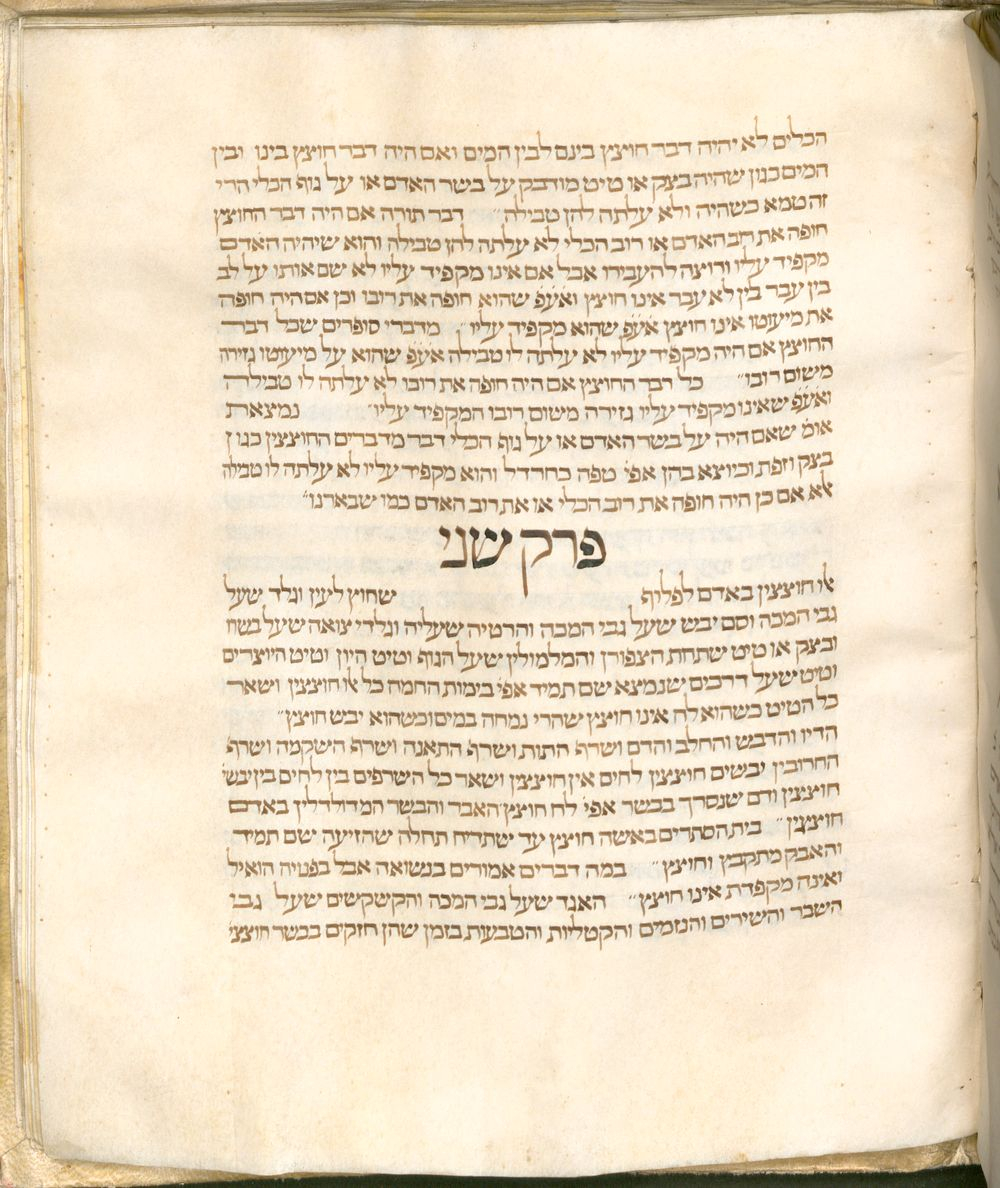 הכלים לא יהיה דבר חוצץ בינם לבין המים ואם היה דבר חוצץ בינו ובין
המים כגון שהיה בצק או טיט מודבק על בשר האדם או על גוף הכלי הרי
זה טמא כשהיה ולא עלתה להן טבילה״ דבר תורה אם היה דבר החוצץ
חופה את רוב האדם או רוב הכלי לא עלתה להן טבילה והוא שיהיה האדם
מקפיד עליו ורוצה להעבירו אבל אם אינו מקפיד עליו לא שם אותו על לב
בין עבר בין לא עבר אינו חוצץ ואעפ שהוא חופה את רובו וכן אם היה חופה
את מיעוטו אינו חוצץ אעפ שהוא מקפיד עליו״ מדברי סופרים שכל דבר
החוצץ אם היה מקפיד עליו לא עלתה לו טבילה אעפ שהוא על מיעוטו גזירה
משום רובו״ כל דבר החוצץ אם היה חופה את רובו לא עלתה לו טבילה
ואעפ שאינו מקפיד עליו גזירה משום רובו המקפיד עליו״ נמצאת
אומ׳ שאם היה על בשר האדם או על גוף הכלי דבר מדברים החוצצין כגון
בצק וזפת וכיוצא בהן אפי׳ טפה כחרדל והוא מקפיד עליו לא עלתה לו טבילה
אא אם כן היה חופה את רוב הכלי או את רוב האדם כמו שבארנו״
פרק שני
אלו חוצצין באדם לפלוף שחוץ לעין וגלד שעל
גבי המכה וסם יבש שעל גבי המכה והרטיה שעליה וגלדי צואה שעל בשרו
ובצק או טיט שתחת הצפורן והמלמולין שעל הגוף וטיט היון וטיט היוצרים
וטיט שעל דרכים שנמצא שם תמיד אפי׳ בימות החמה כל אלו חוצצין ושאר
כל הטיט כשהוא לח אינו חוצץ שהרי נמחה במים וכשהוא יבש חוצץ״
הדיו והדבש והחלב והדם ושרף התות ושרף התאנה ושרף השקמה ושרף
החרובין יבשים חוצצין לחים אין חוצצין ושאר כל השרפים בין לחים בין יבשי׳
חוצצין ודם שנסרך בבשר אפי׳ לח חוצץ האבר והבשר המדולדלין באדם
חוצצין״ בית הסתרים באשה חוצץ עד שתדיח תחלה שהזיעה שם תמיד
והאבק מתקבץ וחוצץ״ במה דברים אמורים בנשואה אבל בפנויה הואיל
ואינה מקפדת אינו חוצץ״ האגד שעל גבי המכה והקשקשים שעל גבי
השבר והשירים והנזמים והקטליות והטבעות בזמן שהן חזקים בבשר חוצצי׳